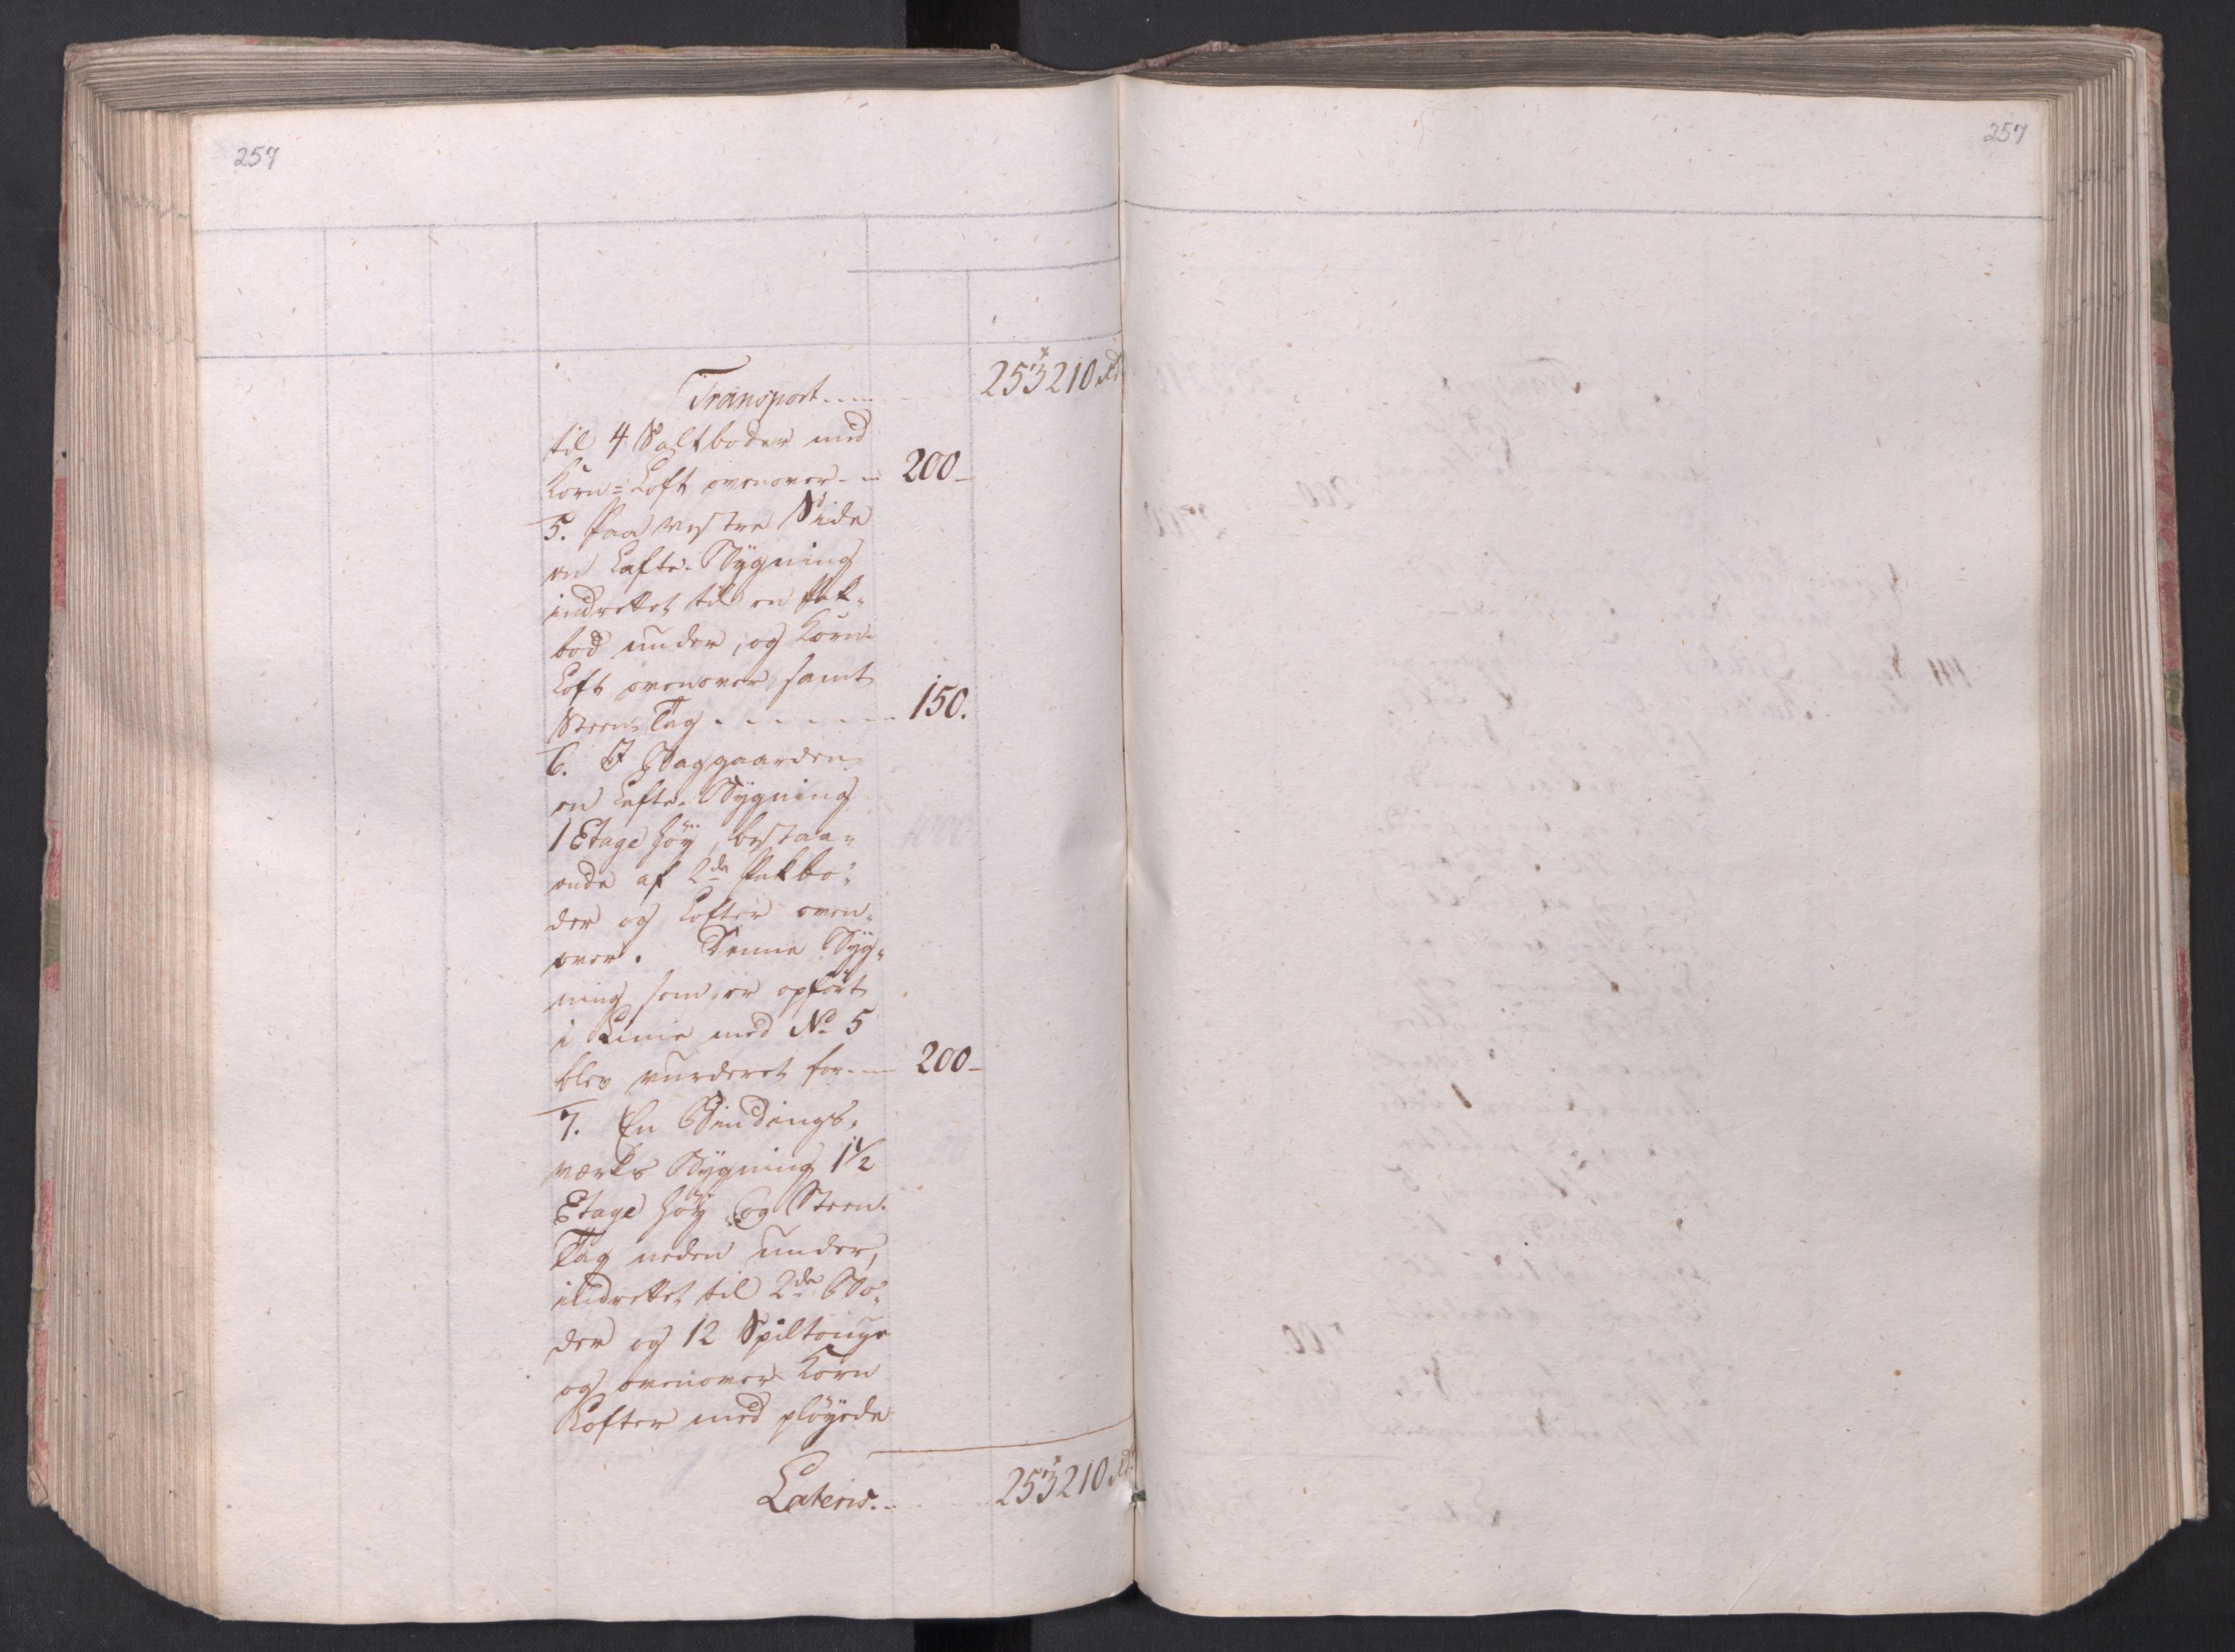 257
257
Transport . . . . 253210 rd
til 4 Saltboder med
Korn=Loft ovenover - - 200 -
5. Paa vestre Side
en Lafte-Bÿgning
indrettet til en Pak-
bod under, og Korn-
Loft ovenover, samt
Steen-Tag . - - - - - - 150.
6. I Baggaarden
en Lafte-Bÿgning
1 Etage høÿ, bestaa-
ende af 2de Pakbo-
der og Lofter oven-
over. Denne Bÿg-
ning som er opført
i Linie med No 5
blev vurderet for - - 200 -
7. En Bindings-
værks Bÿgning 1 1/2
Etage høÿ og Steen-
Tag neden under,
indrettet til 2de Bo-
der og 12 Spiltouge
og ovenover Korn
Lofter med pløÿede
Lateris . . 253210 rd